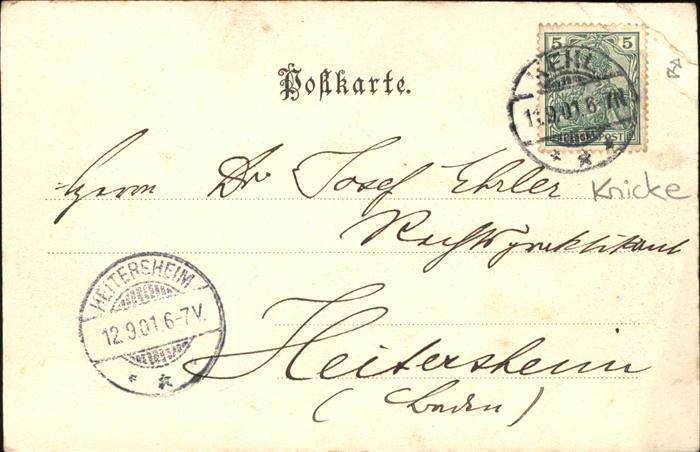 5 5
REICHSPOST
KEHL
11.9.01.6-7N.
Postkarte.
Herrn Dr Josef Ehrler
Knicke
Rechtspraktikant
HEITERSHEIM
12.9.01.6-7V.
Heitersheim
(Baden)